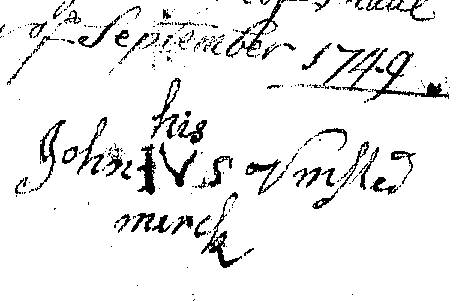 of September 1749
his
John IVS Vmsted
merck